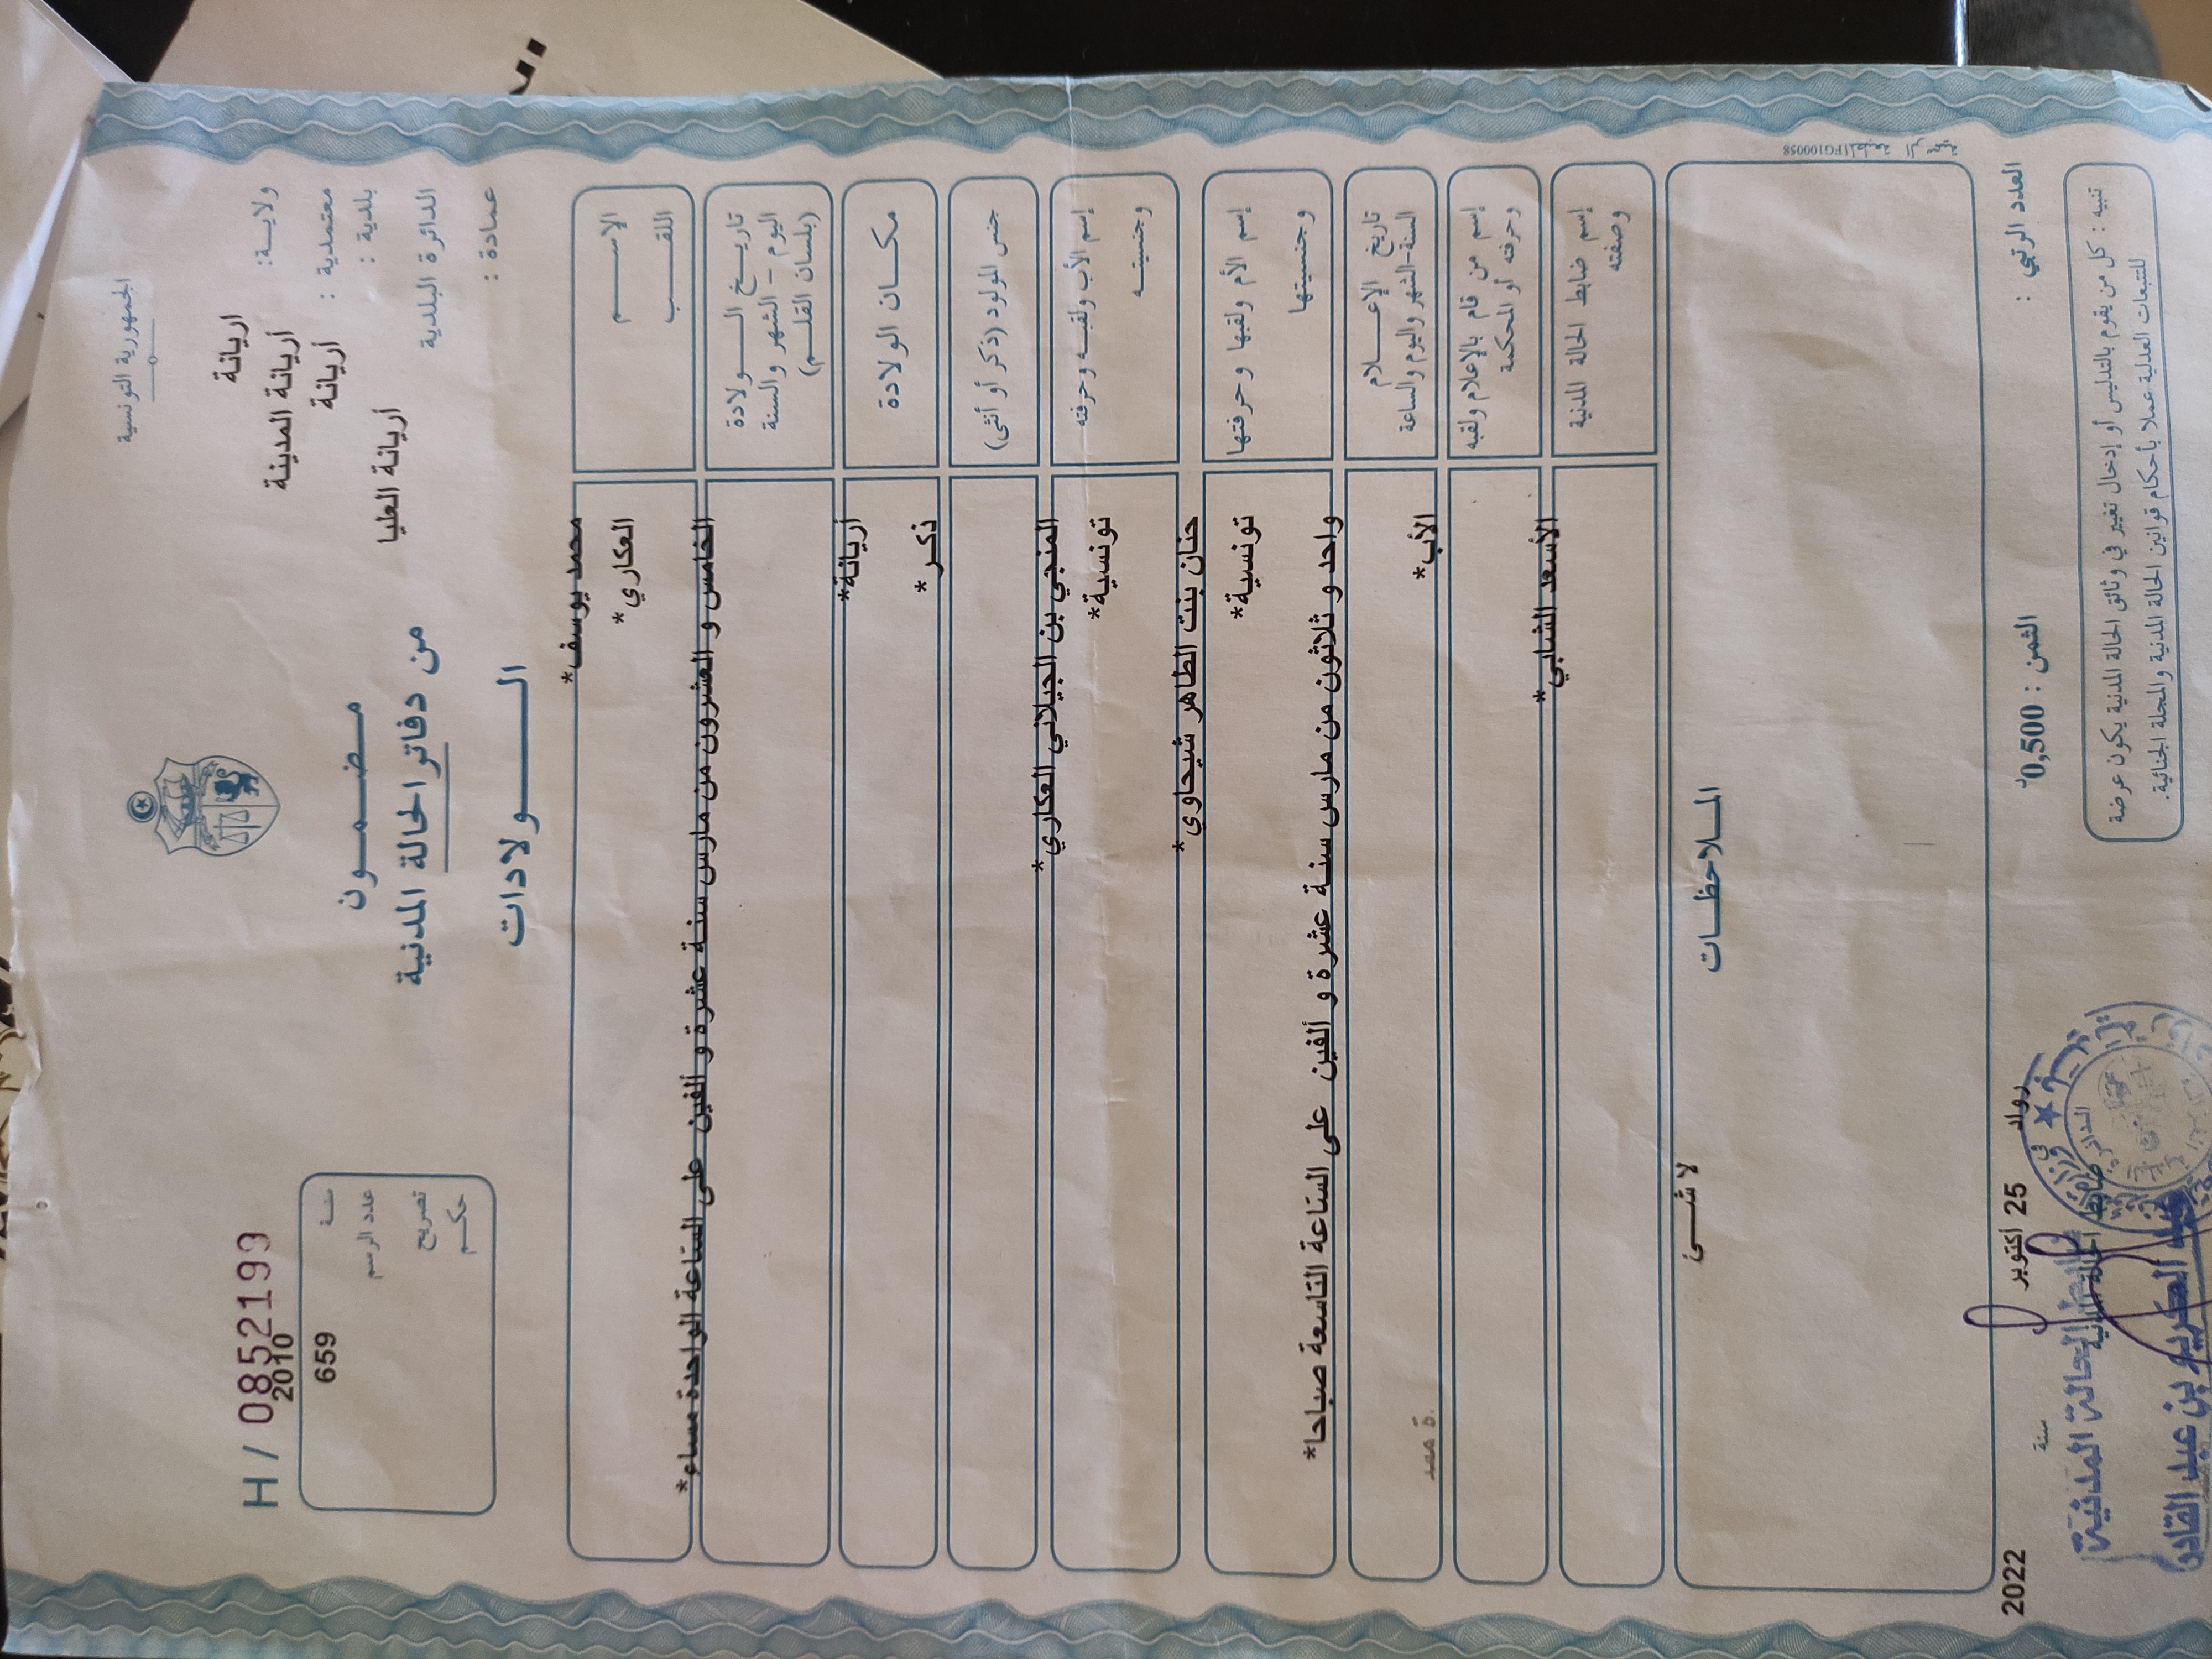 الجمهورية التونسية
ولايـــة: اريانة
معتمدية : أريانة المدينة
بلدية : أريانة
الدائرة البلدية أريانة العليا
عمادة :
مـضـــمـــون
من دفاتر الحالة المدنية
الـــــولادات
H / 0852199
سنـة 2010
عدد الرسم 659
تصريح
حكـم
الإســـــم محمد يوسف*
اللقـــــب العكاري*
تاريـــخ الـــــولادة
اليوم - الشهر والسنة
(بلسان القلـــم)
الخامس و العشرون من مارس سنة عشرة و ألفين على الساعة الواحدة مساء*
مكـــان الولادة أريانة*
جنس المولود (ذكر أو أنثى) ذكر*
إسم الأب ولقبـه وحرفته المنجي بن الجيلاني العكاري*
وجنسيتـــه تونسية*
إسم الأم ولقبها وحرفتها حنان بنت الطاهر شيحاوي*
وجنسيتها تونسية*
تاريخ الإعــــلام
السنة-الشهر واليوم والساعة
واحد و ثلاثون من مارس سنة عشرة و ألفين على الساعة التاسعة صباحا*
إسم من قام بالإعلام ولقبه
وحرفته أو المحكمة
الأب*
إسم ضابط الحالة المدنية
وصفته
الأسعد الشابي*
المـلاحظـــات
لا شـــئ
العدد الرتبي :
الثمن : 0,500د
رواد في 25 أكتوبر سنة 2022
ضابط الحالة المدنية
ضابط الحالة المدنية
بن عبد القادر
تنبيه : كل من يقوم بالتدليس أو إدخال تغيير في وثائق الحالة المدنية يكون عرضة
للتتبعات العدلية عملا بأحكام قوانين الحالة المدنية والمجلة الجنائية.